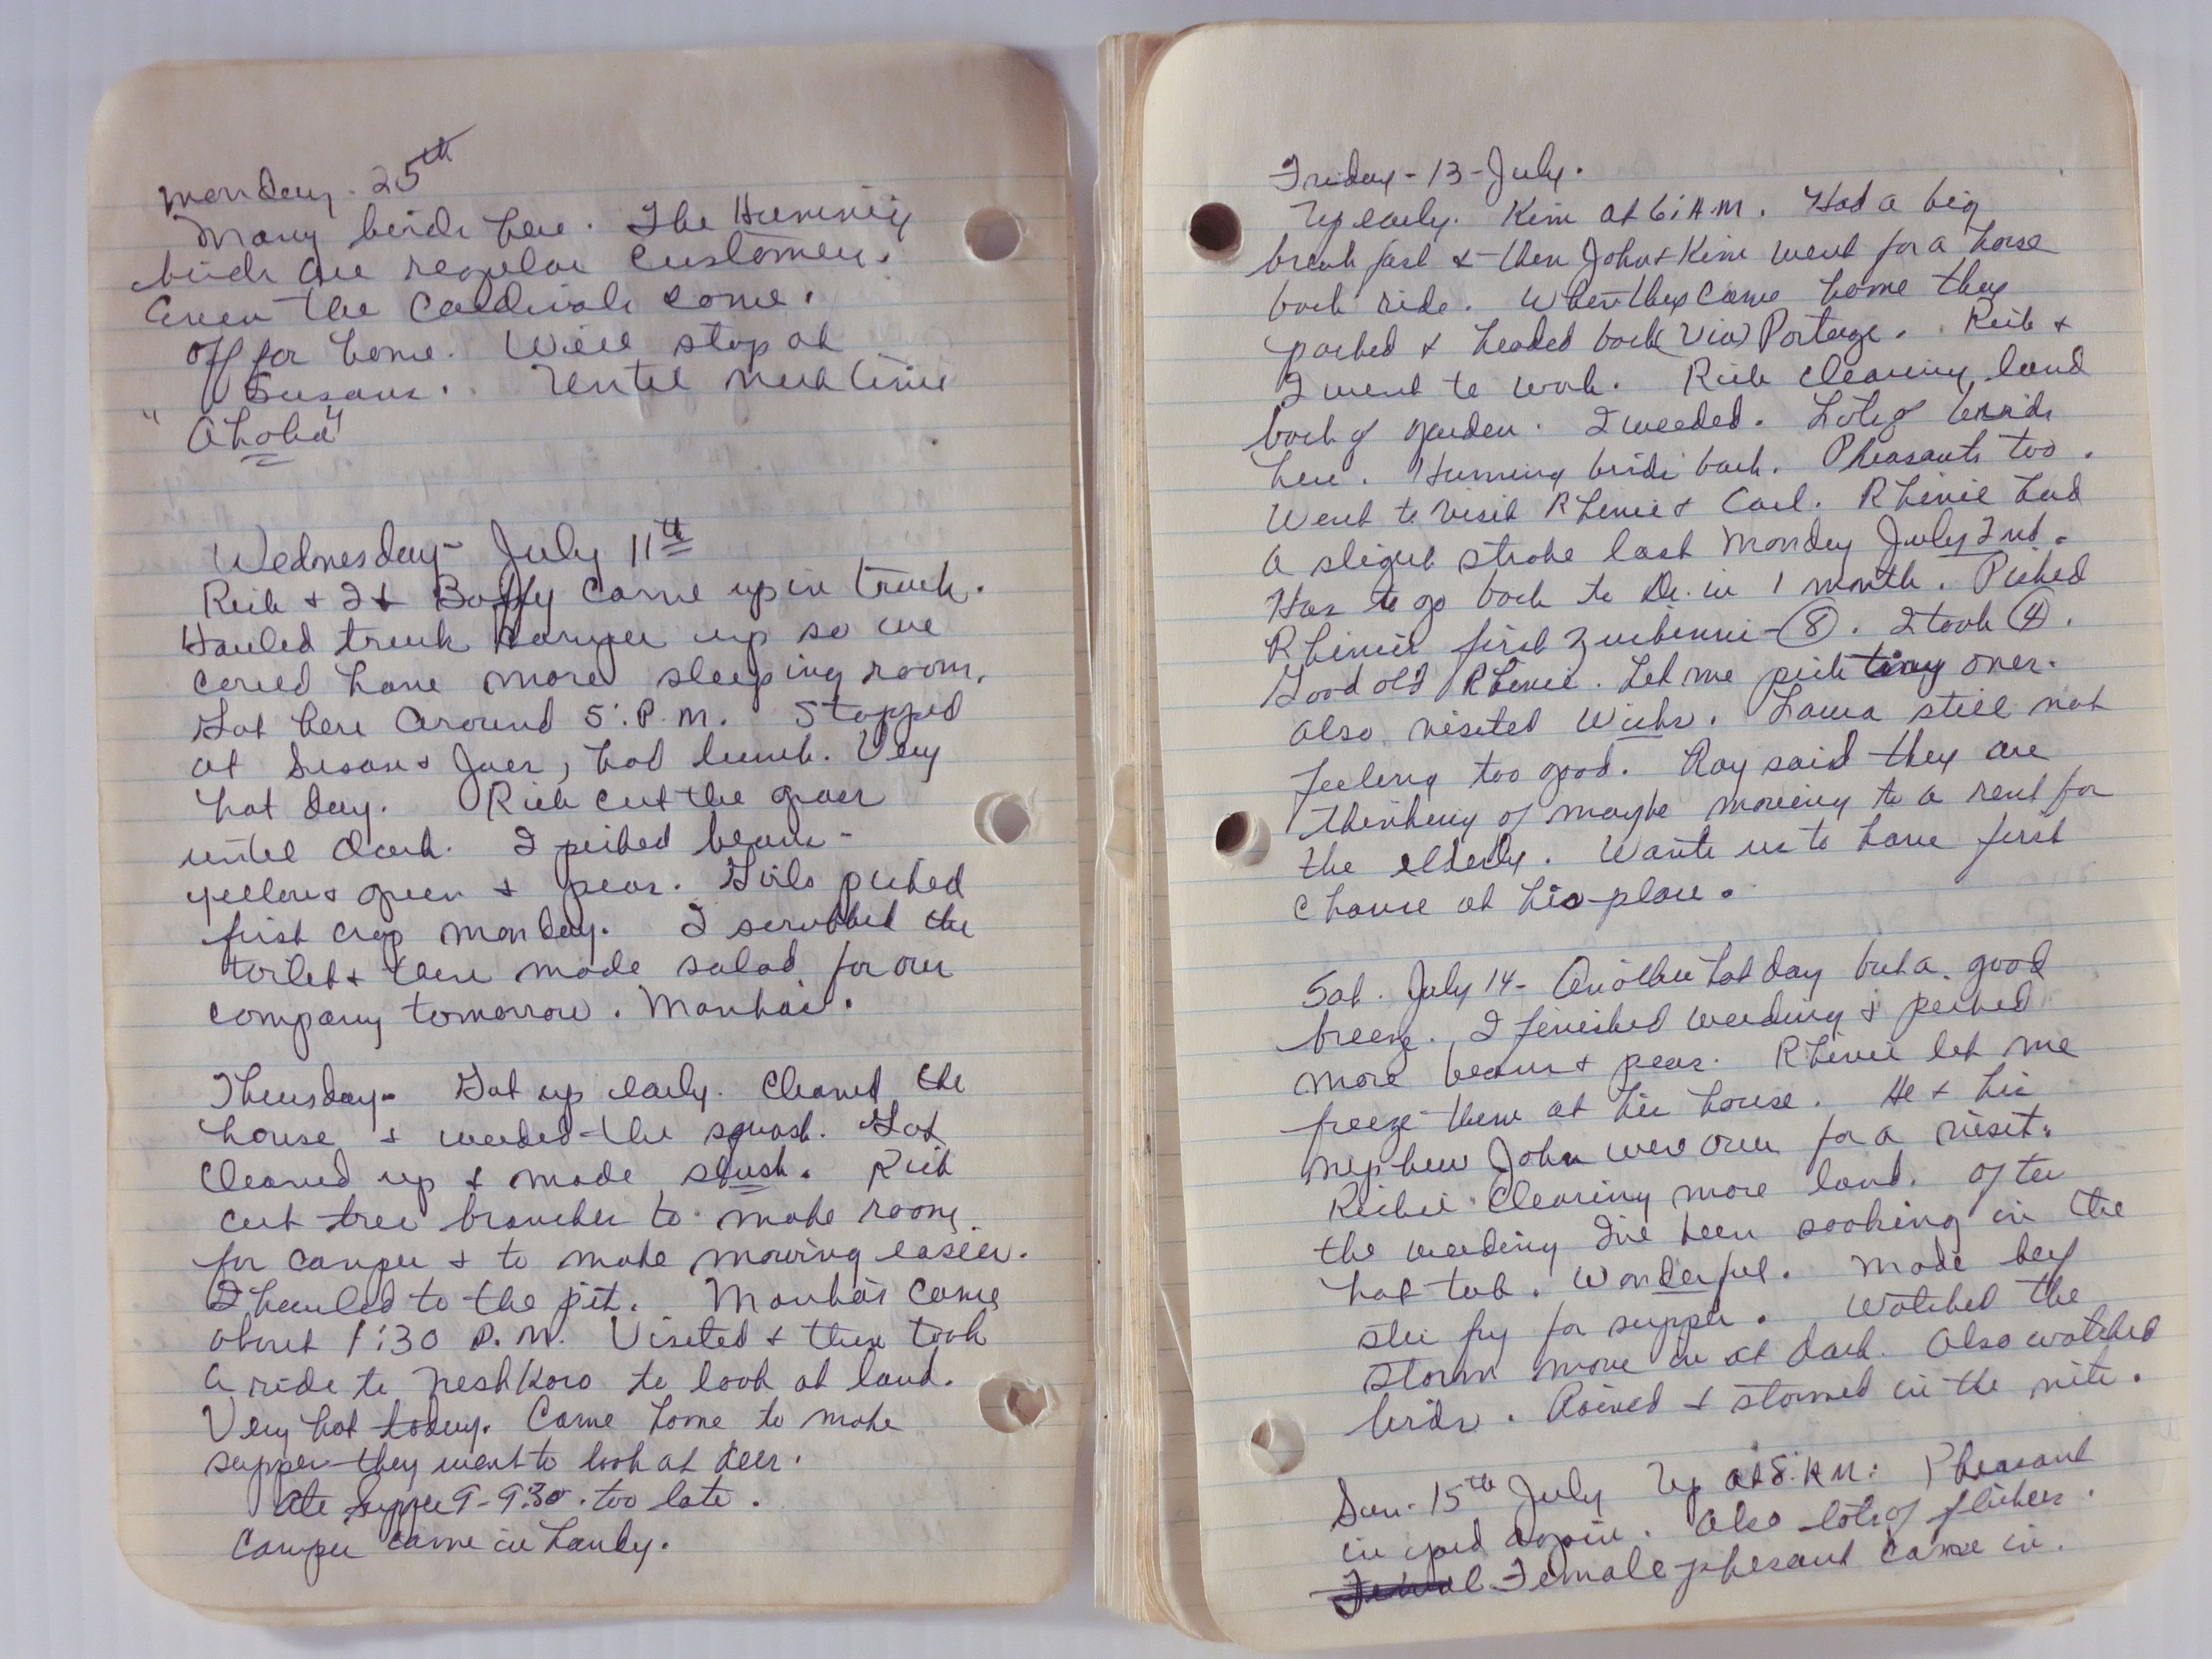 Monday. 25th
Many birds here. The Humming
birds are regular customers.
Even the Cardinals come.
Off for home. Will stop at
Susans. Until next time
"Aloha"
Wednesday - July 11th
Rich & I & Buffy came up in truck.
Hauled truck camper up so we
could have more sleeping room.
Got here around 5:P.M. Stopped
at Susan & Joes, had lunch. Very
hot day. Rich cut the grass
until dark. I picked beans -
yellow & green & peas. Girls picked
first crop Monday. I scrubbed the
toilet & then made salad for our
company tomorrow.
Thursday - Got up early. Cleaned the
house & weeded the squash. Got
cleaned up & made slush. Rich
cut tree branches to make room
for camper & to make mowing easier.
I hauled to the pit. came
about 1:30 P.M. Visited & then took
a ride to Neshkoro to look at land.
Very hot today. Came home to make
supper - they went to look at deer.
Ate supper 9 - 9:30. too late.
Camper came in handy.
Friday - 13 - July.
Up early. Kim at 6:A.M. Had a big
breakfast & then John & Kim went for a horse
back ride. When they came home they
packed & headed back (via) Portage. Rich &
I went to work. Rich clearing land
back of garden. I weeded. Lots of birds
here. Humming birds back. Pheasants too.
Went to visit Rhinie & Carl. Rhinie had
a slight stroke last Monday July 2nd.
Has to go back to Dr. in 1 month. Picked
Rhinies first zuchinni - 8. I took 4.
Good old Rhinie. Let me pick tiny ones.
Also visited Laura still not
feeling too good. Ray said they are
thinking of maybe moving to a rent for
the elderly. Wants us to have first
chance at his place.
Sat. July 14 - Another hot day but a good
breeze. I finished weeding & picked
more beans & peas. Rhinie let me
freeze them at his house. He & his
nephew John were over for a visit.
Richie clearing more land. After
the weeding I've been soaking in the
hot tub. Wonderful. Made beef
stir fry for supper. Watched the
storm move in at dark. Also watched
birds. Rained & stormed in the nite.
Sun - 15th July Up at 8:A.M. Pheasant
in yard again. Also lots of flickers.
Female phesant came in.